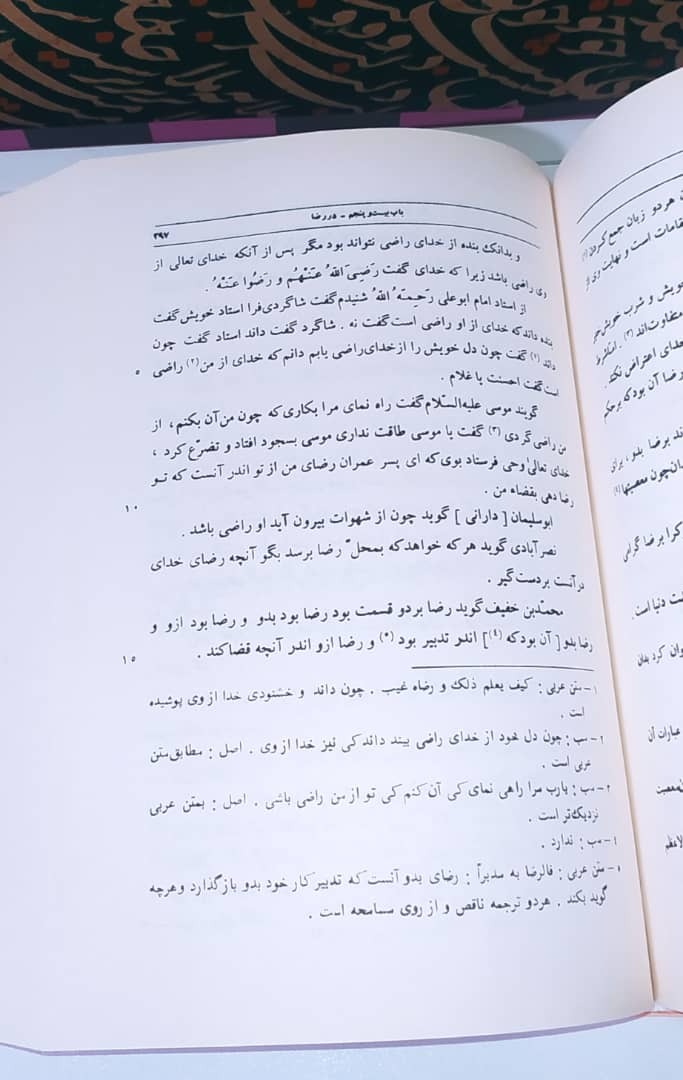 باب بیست و پنجم - در رضا
۲۹۷
و بدانک بنده از خدای راضی نتواند بود مگر پس از آنکه خدای تعالی از
وی راضی باشد زیرا که خدای گفت رَضِیَ اللّٰهُ عَنْهُم و رَضُوا عَنْهُ .
از استاد امام ابوعلی رَحِمَهُ اللّٰهُ شنیدم گفت شاگردی فرا استاد خویش گفت
بنده داند که خدای از او راضی است گفت نه . شاگرد گفت داند استاد گفت چون
داند (۱) گفت چون دل خویش را از خدای راضی یابم دانم که خدای از من (۲) راضی
۵
است گفت احسنت یا غلام .
گویند موسی علیه السّلام گفت راه نمای مرا بکاری که چون من آن بکنم ، از
من راضی گردی (۳) گفت یا موسی طاقت نداری موسی بسجود افتاد و تضرّع کرد ،
خدای تعالیٰ وحی فرستاد بوی که ای پسر عمران رضای من از تو اندر آنست که تو
رضا دهی بقضاء من .
۱۰
ابوسلیمان [ دارانی ] گوید چون از شهوات بیرون آید او راضی باشد .
نصرآبادی گوید هر که خواهد که بمحلّ رضا برسد بگو آنچه رضای خدای
در آنست بر دست گیر .
محمّدبن خفیف گوید رضا بر دو قسمت بود رضا بود بدو و رضا بود ازو و
رضا بدو [ آن بود که (٤) ] اندر تدبیر بود (۵) و رضا ازو اندر آنچه قضا کند .
۱۵
۱ - متن عربی : کیف یعلم ذلک و رضاه غیب . چون داند و خشنودی خدا از وی پوشیده
است .
۲ - مب : چون دل خود از خدای راضی بیند داند کی نیز خدا از وی . اصل : مطابق متن
عربی است .
۳ - مب : یارب مرا راهی نمای کی آن کنم کی تو از من راضی باشی . اصل : بمتن عربی
نزدیک‌تر است .
- مب : ندارد .
- متن عربی : فالرضا به مدبراً : رضای بدو آنست که تدبیر کار خود بدو بازگذارد و هرچه
گوید بکند . هر دو ترجمه ناقص و از روی مسامحه است .
هر دو زبان جمع کردن
مقامات است و نهایت وی از
خویش و شرب خویش خبر
متفاوت‌اند (۳) .
خدای اعتراض نکند
رضا آن بود که بر حکم